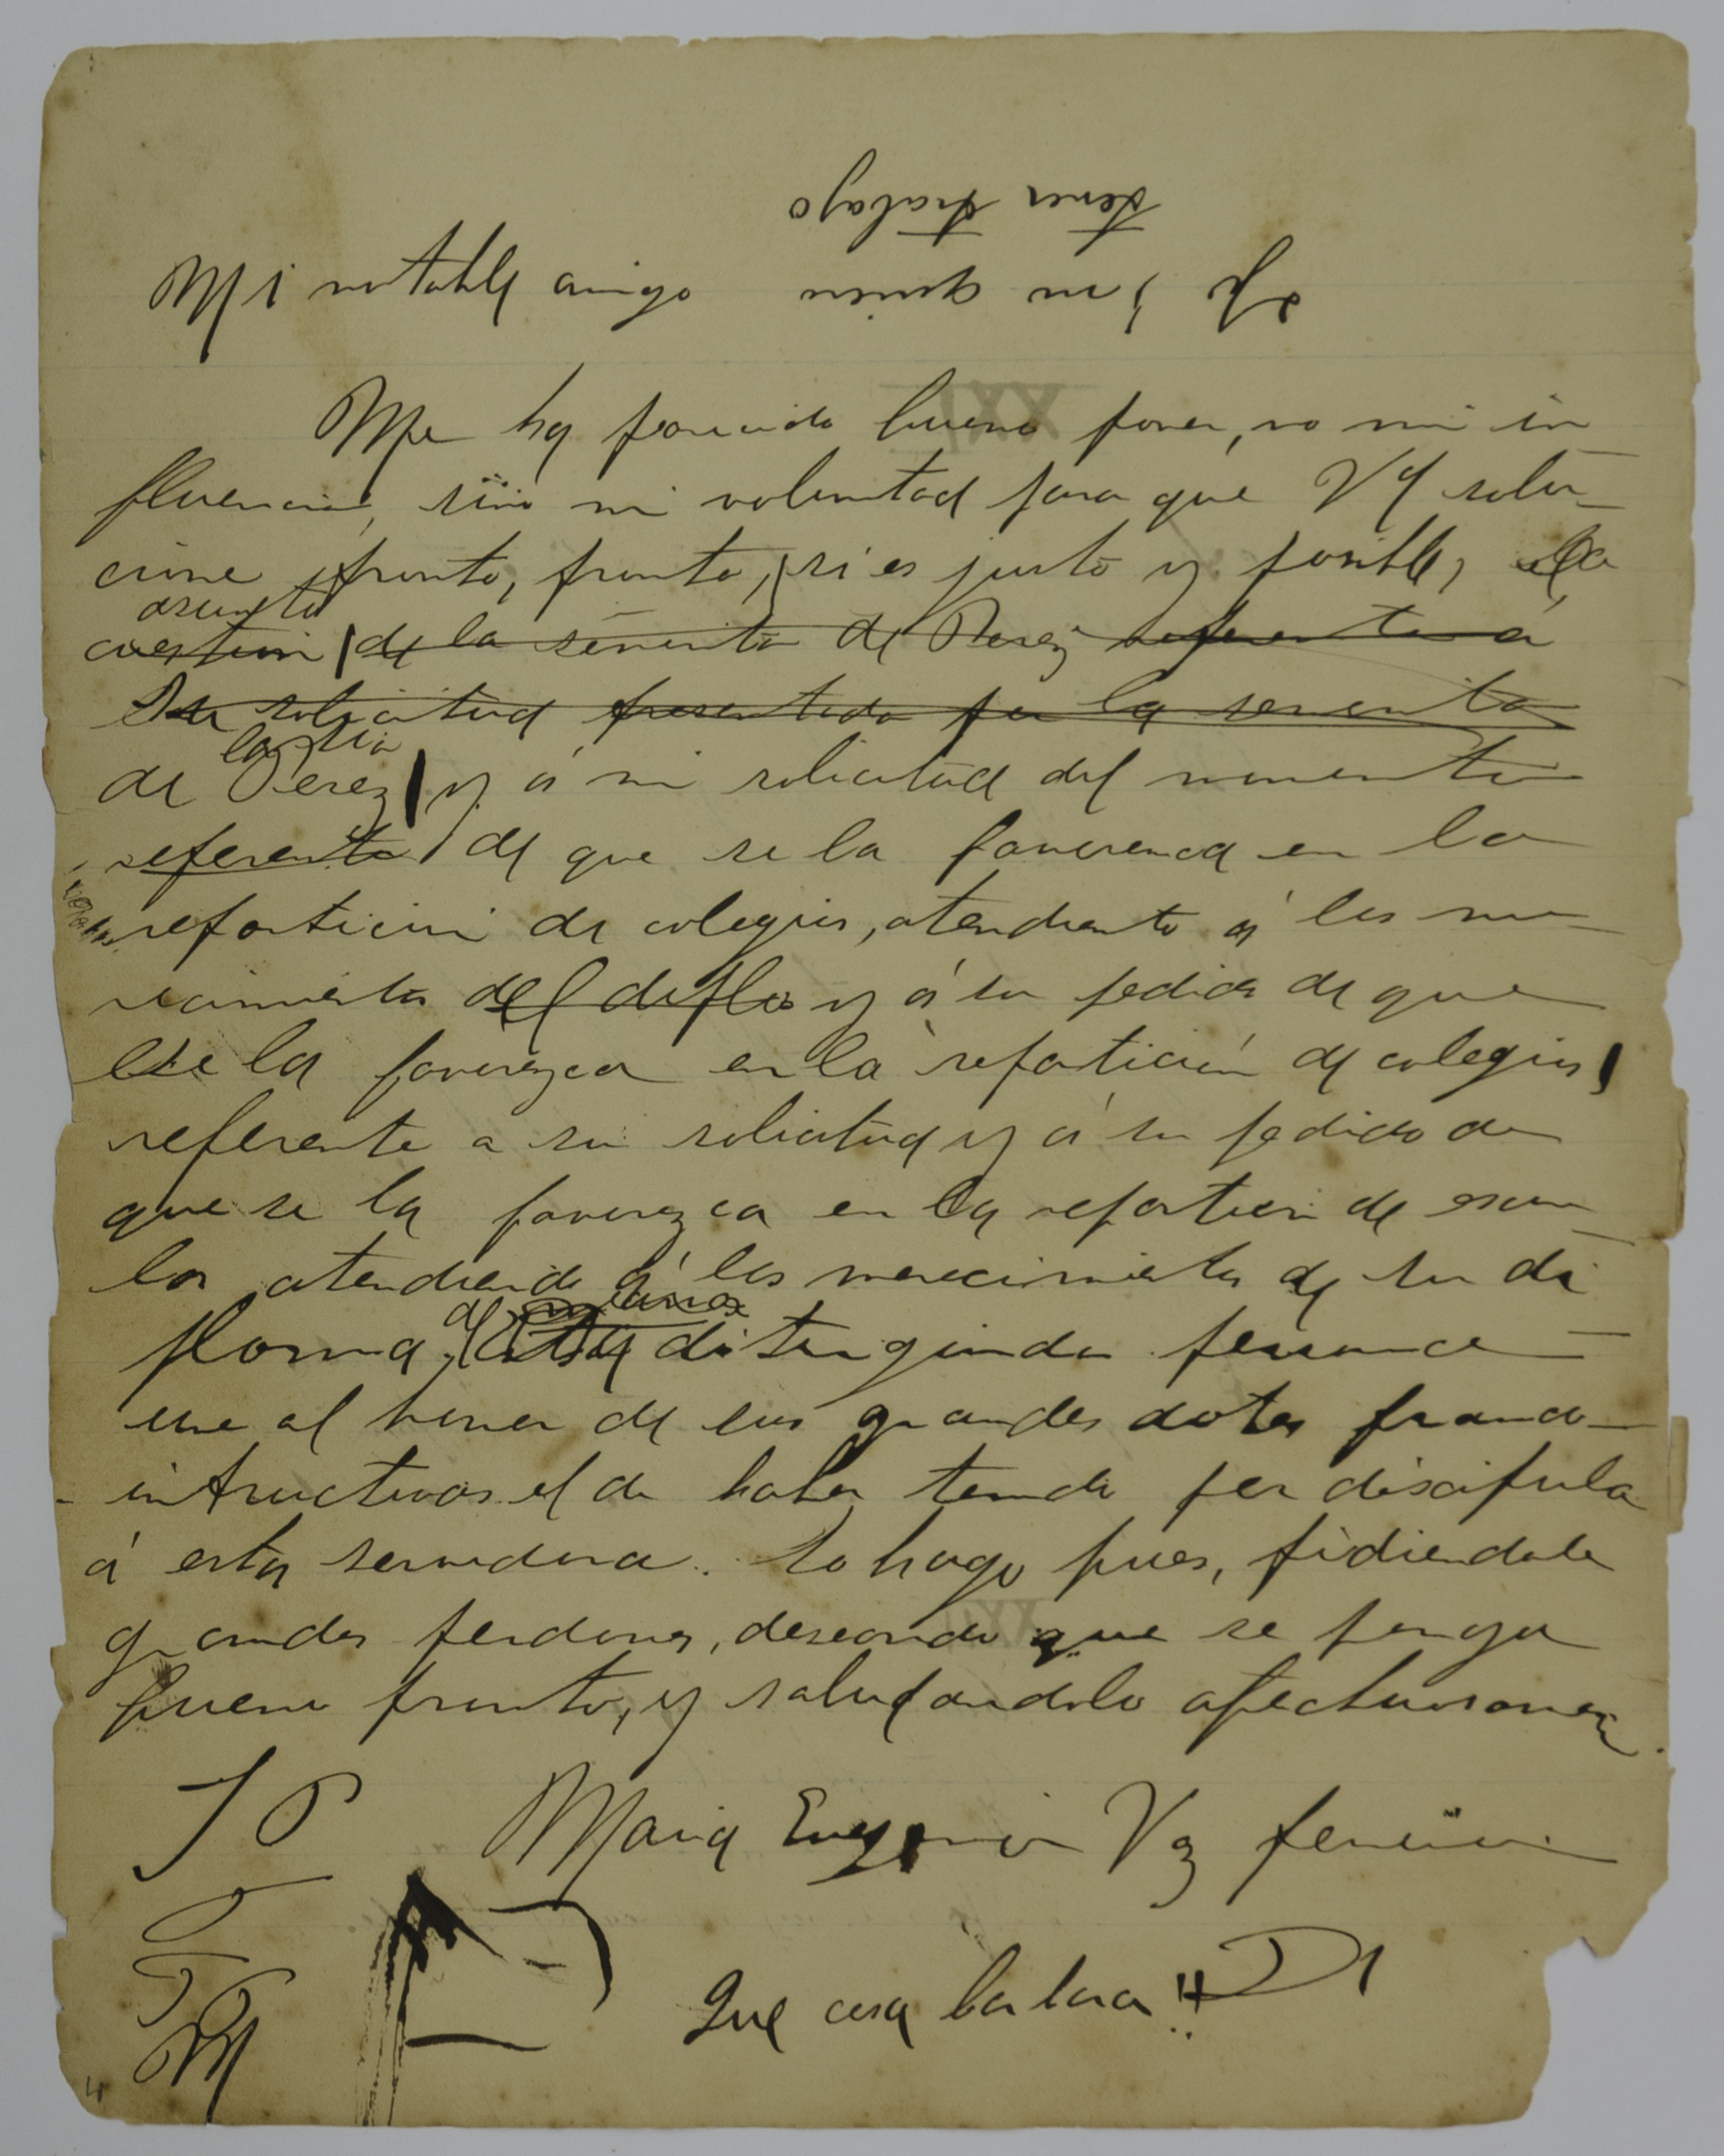 tener trabajo
Mi notable amigo
y no quiero
Me ha parecido bueno poner, no mi in
fluencia, sinó mi voluntad para que Vd solu-
cione pronto, pronto, si es justo y posible, la
asunto
cuestion de la señorita de Perez referente á
Su solicitud presentada por la señorita
la sria
de Perez y á mi solicitud del momento
referente de que se la favorezca en la
reparticion de colegios, atendiento á los me-
recimientos del diplo y á su pedido de que
se la favorezca en la repartición de colegios
referente a su solicitud y á su pedido de
que se la favorezca en la reparticion de escue
las atendiendo á los merecimientos de su di
ploma. Esta distinguida persona
une al honor de sus grandes dotes
-instructivas el de haber tenido por discipula
á esta servidora. Lo hago pues, pidiendole
grandes perdones, deseando que se ponga
bueno pronto, y saludandolo afectuosamen
Maria Eugenia Vz Ferreira
Que cosa barbara!!